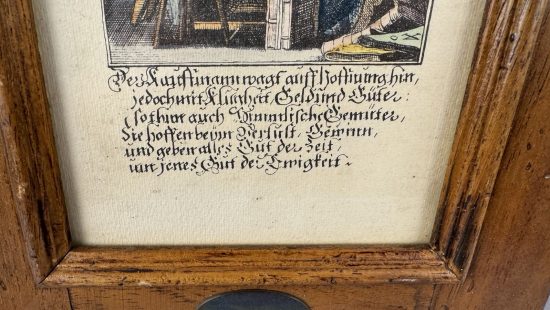 Der Kauffmann wagt auff Hoffnung hin,
jedoch mit Klugheit, Geld und Güter:
so thun auch Himmlische Gemüter,
Sie hoffen beÿm Verlust, Gewinn,
und geben alles Gut der Zeit,
um jenes Gut der Ewigkeit.